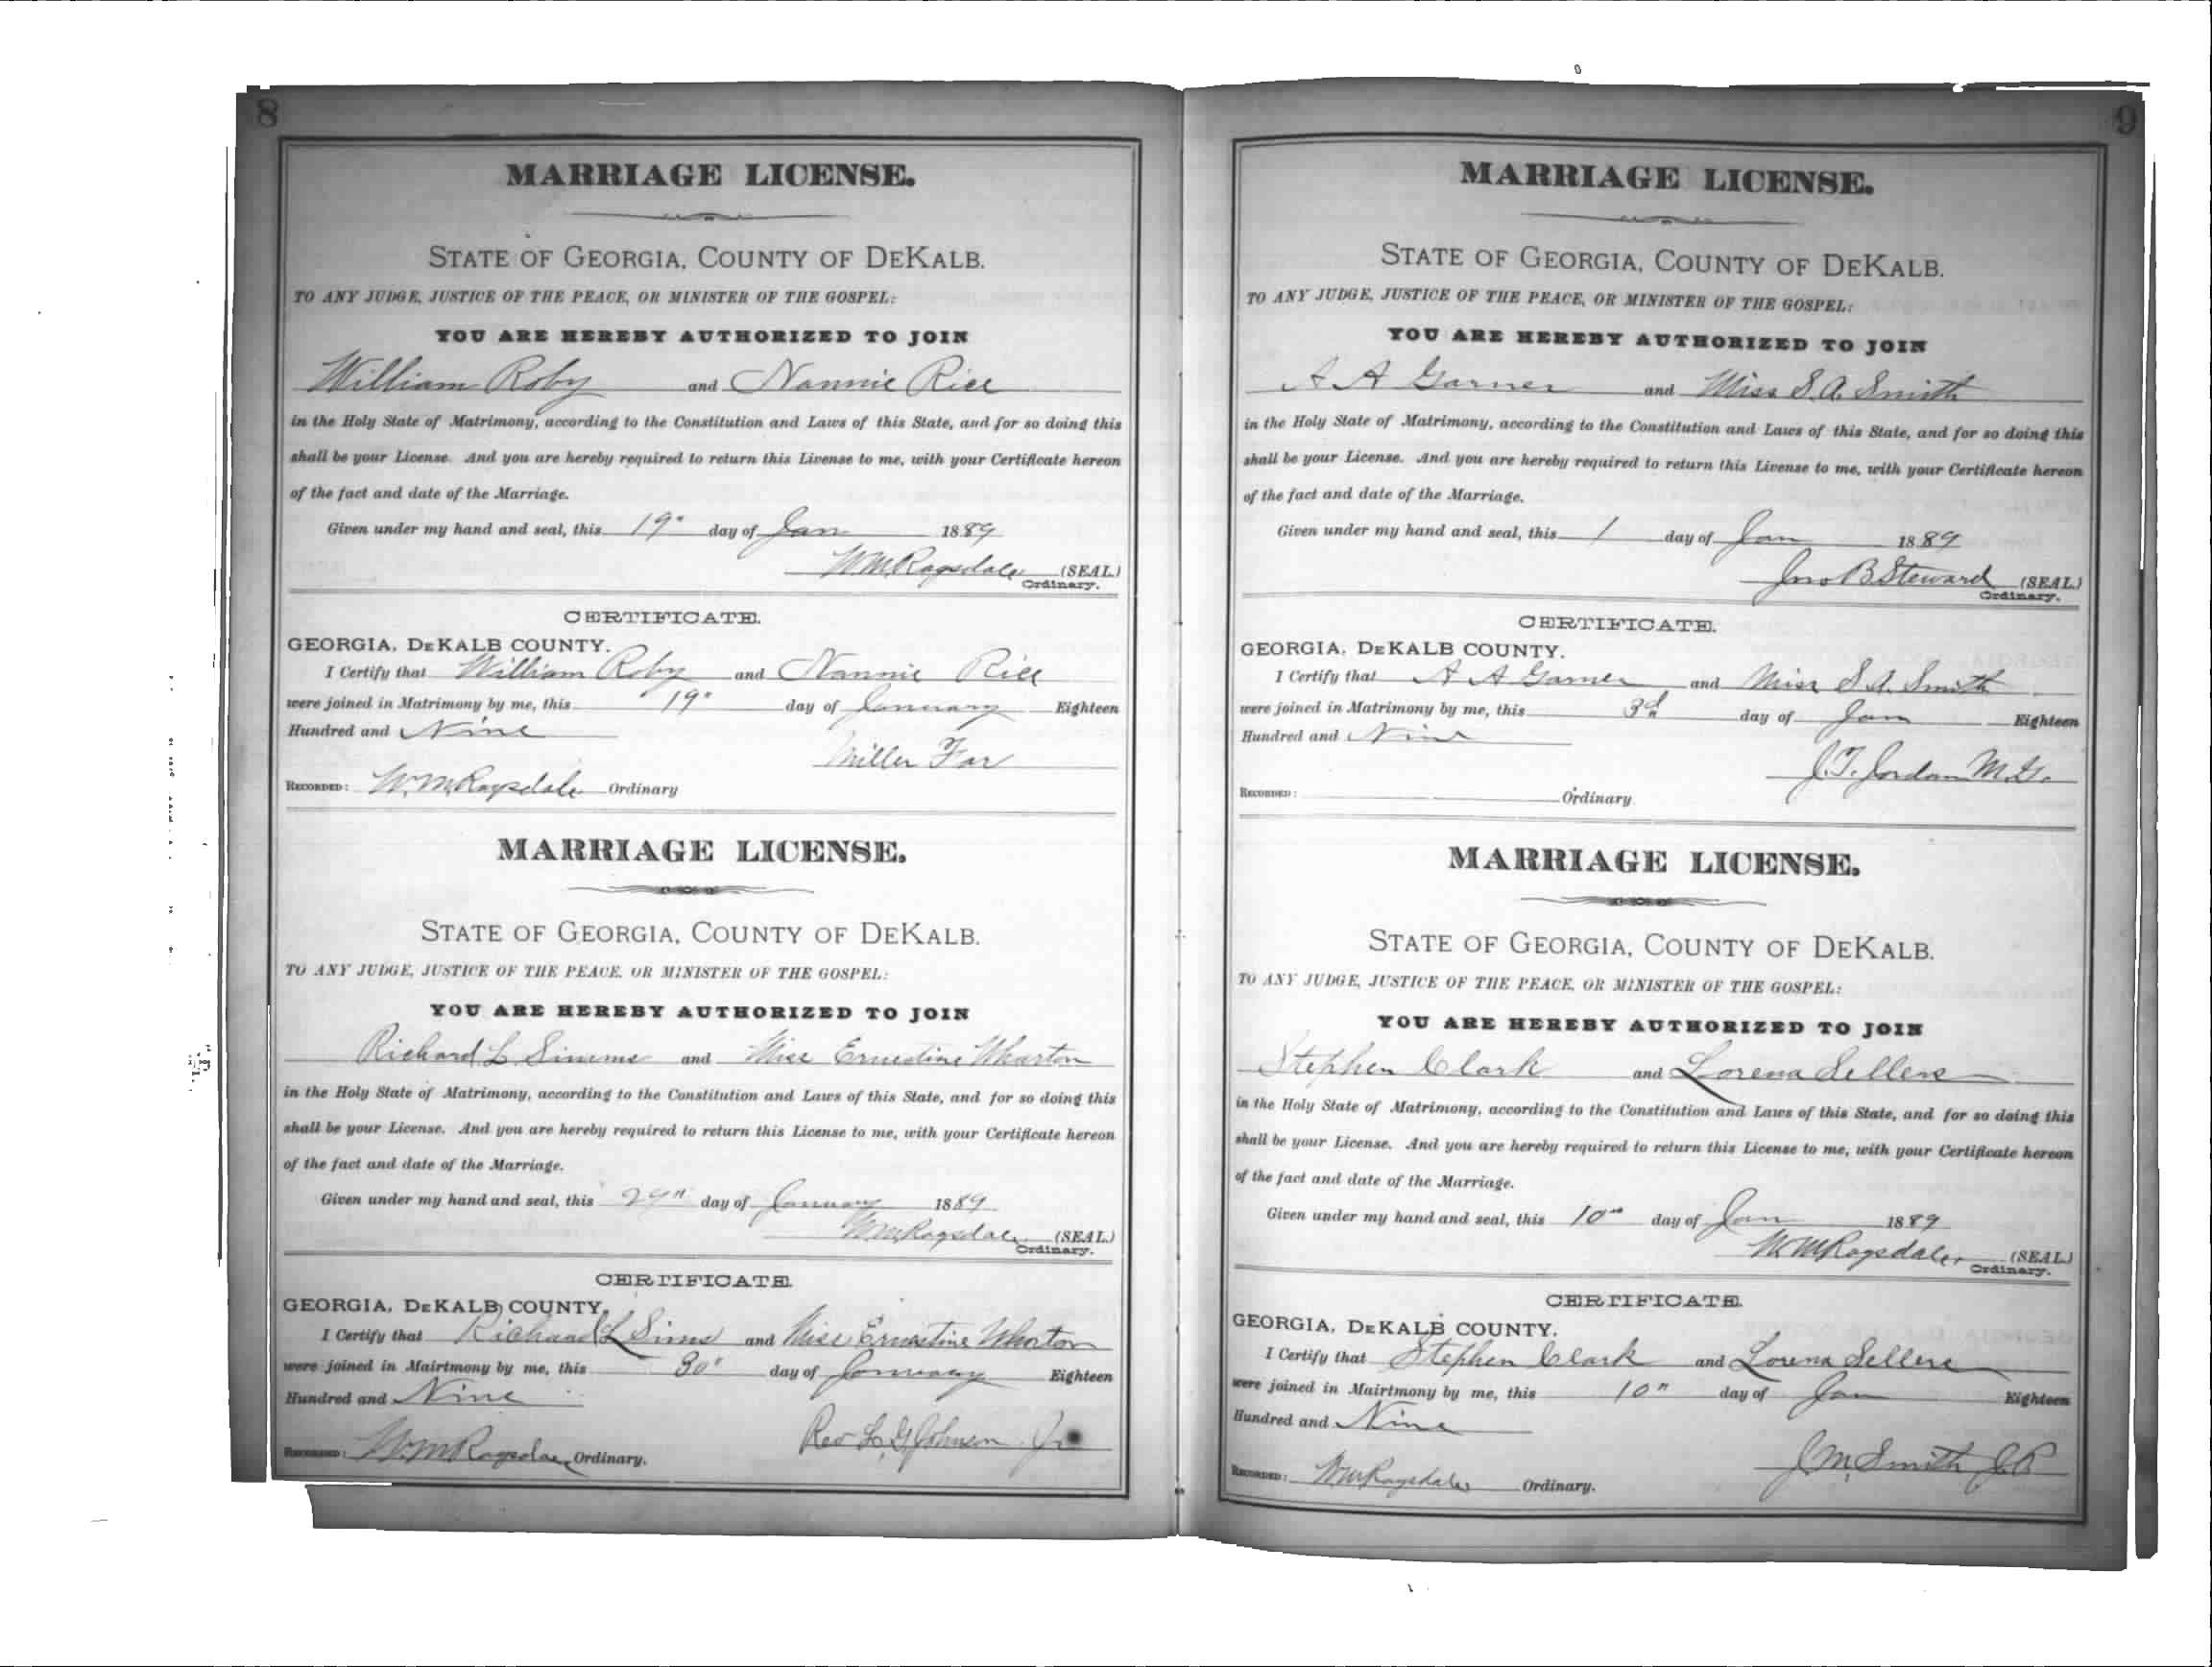 8
MARRIAGE LICENSE.
STATE OF GEORGIA, COUNTY OF DEKALB.
TO ANY JUDGE, JUSTICE OF THE PEACE, OR MINISTER OF THE GOSPEL:
YOU ARE HEREBY AUTHORIZED TO JOIN
William Roby and Nannie Rice
in the Holy State of Matrimony, according to the Constitution and Laws of this State, and for so doing this
shall be your License. And you are hereby required to return this License to me, with your Certificate hereon
of the fact and date of the Marriage.
Given under my hand and seal, this 19" day of Jan 1889
W M Ragsdale (SEAL)
Ordinary.
CERTIFICATE.
GEORGIA, DEKALB COUNTY.
I Certify that William Roby and Nannie Rice
were joined in Matrimony by me, this 19" day of January Eighteen
Hundred and Nine
Miller Far
RECORDED: W. M. Ragsdale Ordinary
MARRIAGE LICENSE.
STATE OF GEORGIA, COUNTY OF DEKALB.
TO ANY JUDGE, JUSTICE OF THE PEACE, OR MINISTER OF THE GOSPEL:
YOU ARE HEREBY AUTHORIZED TO JOIN
Richard L. Simms and Miss Ernestine Wharton
in the Holy State of Matrimony, according to the Constitution and Laws of this State, and for so doing this
shall be your License. And you are hereby required to return this License to me, with your Certificate hereon
of the fact and date of the Marriage.
Given under my hand and seal, this 29th day of January 1889
W M Ragsdale (SEAL)
Ordinary.
CERTIFICATE.
GEORGIA, DEKALB COUNTY.
I Certify that Richard L Sims and Miss Ernestine Wharton
were joined in Mairtmony by me, this 30" day of January Eighteen
Hundred and Nine
Rev L. G. Johnson
RECORDED: W. M Ragsdale Ordinary.
9
MARRIAGE LICENSE.
STATE OF GEORGIA, COUNTY OF DEKALB.
TO ANY JUDGE, JUSTICE OF THE PEACE, OR MINISTER OF THE GOSPEL:
YOU ARE HEREBY AUTHORIZED TO JOIN
A A Garner and Miss S. A. Smith
in the Holy State of Matrimony, according to the Constitution and Laws of this State, and for so doing this
shall be your License. And you are hereby required to return this License to me, with your Certificate hereon
of the fact and date of the Marriage.
Given under my hand and seal, this 1 day of Jan 1889
Jno B Steward (SEAL)
Ordinary.
CERTIFICATE.
GEORGIA, DEKALB COUNTY.
I Certify that A A Garner and Miss S. A. Smith
were joined in Matrimony by me, this 3d day of Jan Eighteen
Hundred and Nine
J. T. Jordan M. G.
RECORDED: Ordinary
MARRIAGE LICENSE.
STATE OF GEORGIA, COUNTY OF DEKALB.
TO ANY JUDGE, JUSTICE OF THE PEACE, OR MINISTER OF THE GOSPEL:
YOU ARE HEREBY AUTHORIZED TO JOIN
Stephen Clark and Lorena Sellers
in the Holy State of Matrimony, according to the Constitution and Laws of this State, and for so doing this
shall be your License. And you are hereby required to return this License to me, with your Certificate hereon
of the fact and date of the Marriage.
Given under my hand and seal, this 10th day of Jan 1889
W M Ragsdale (SEAL)
Ordinary.
CERTIFICATE.
GEORGIA, DEKALB COUNTY.
I Certify that Stephen Clark and Lorena Sellers
were joined in Mairtmony by me, this 10" day of Jan Eighteen
Hundred and Nine
J. M. Smith J. P.
RECORDED: W M Ragsdale Ordinary.